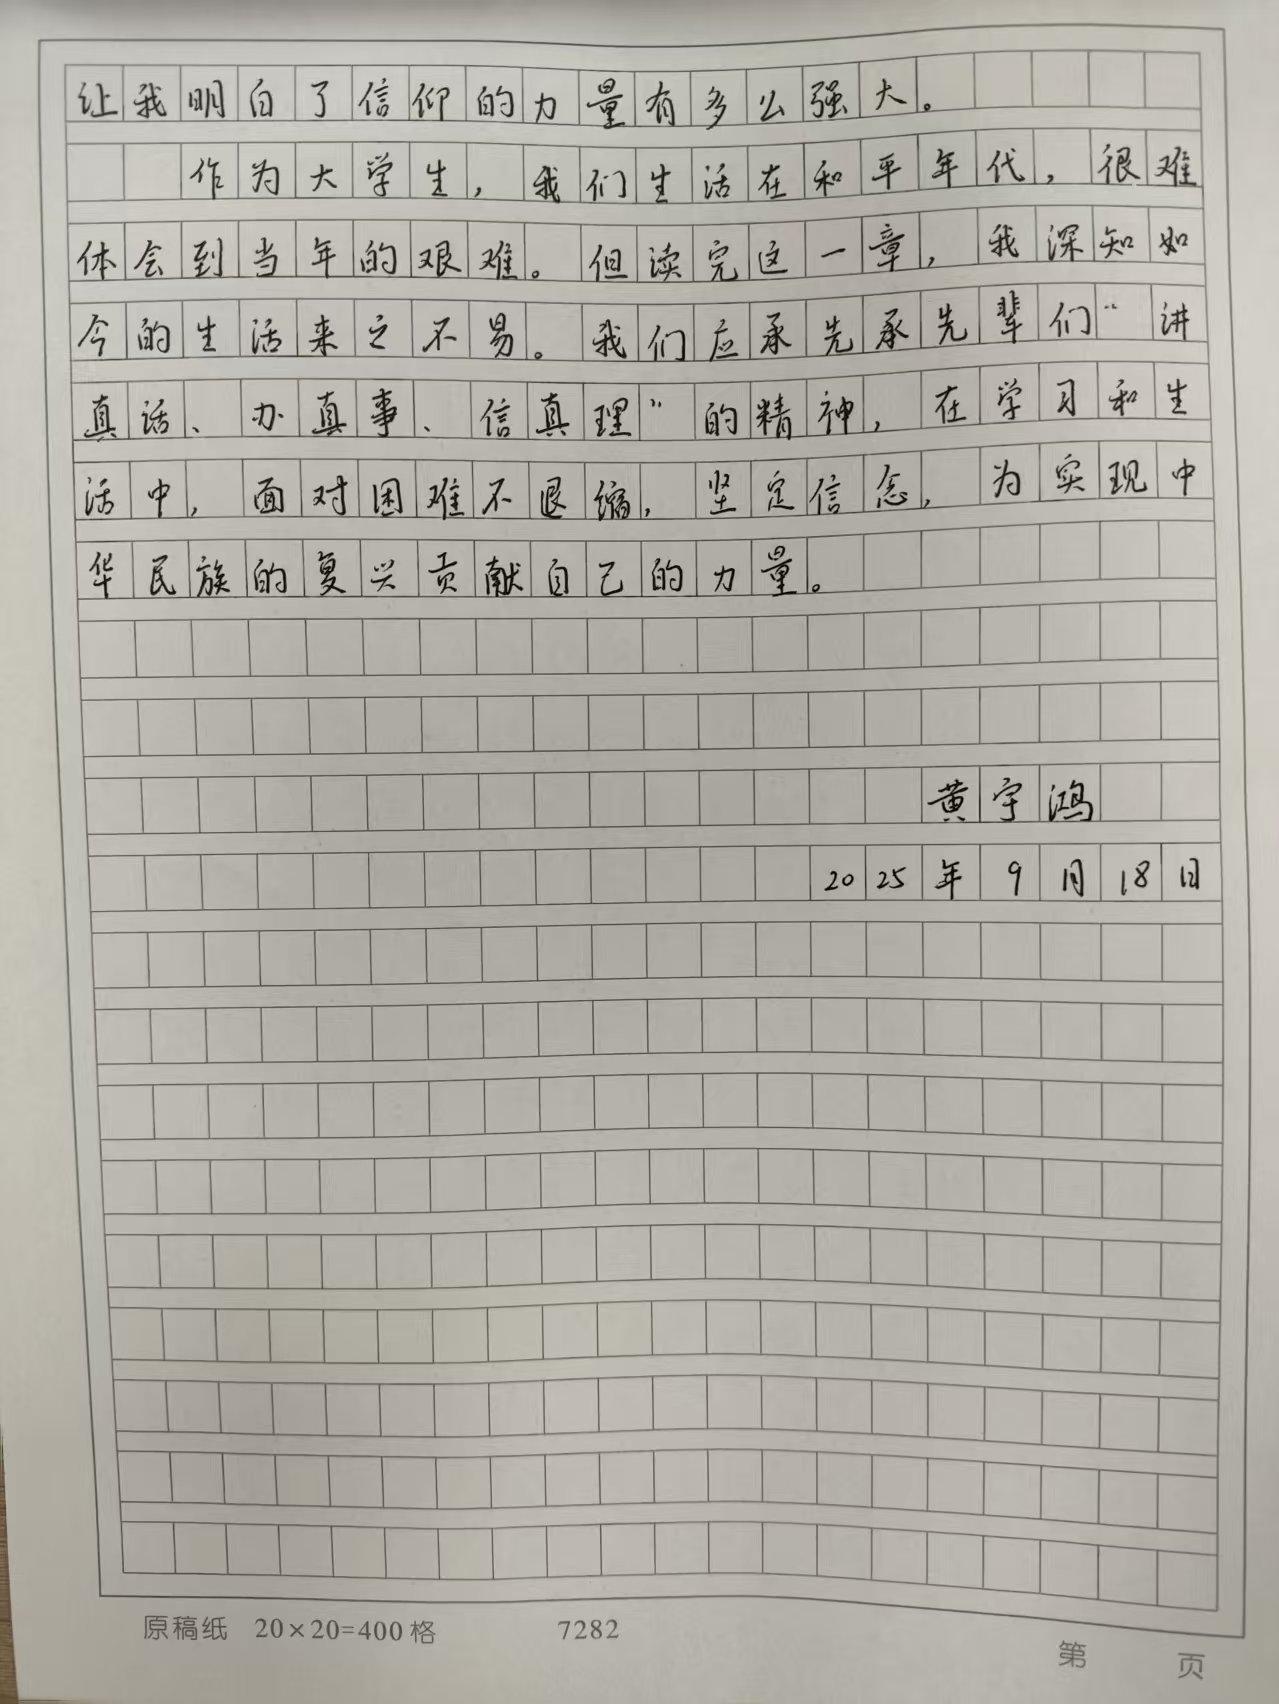 让我明白了信仰的力量有多么强大。
作为大学生，我们生活在和平年代，很难
体会到当年的艰难。但读完这一章，我深知如
今的生活来之不易。我们应承先承先辈们“讲
真话、办真事、信真理”的精神，在学习和生
活中，面对困难不退缩，坚定信念，为实现中
华民族的复兴贡献自己的力量。
黄宇鸿
2025年9月18日
原稿纸 20×20=400格 7282
第 页